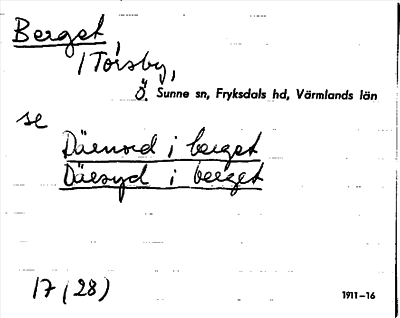 Berget,
/Torsby,
Ö. Sunne sn, Fryksdals hd, Värmlands län
se
Därnord i berget
Däresyd i berget
17 (28)
1911–16